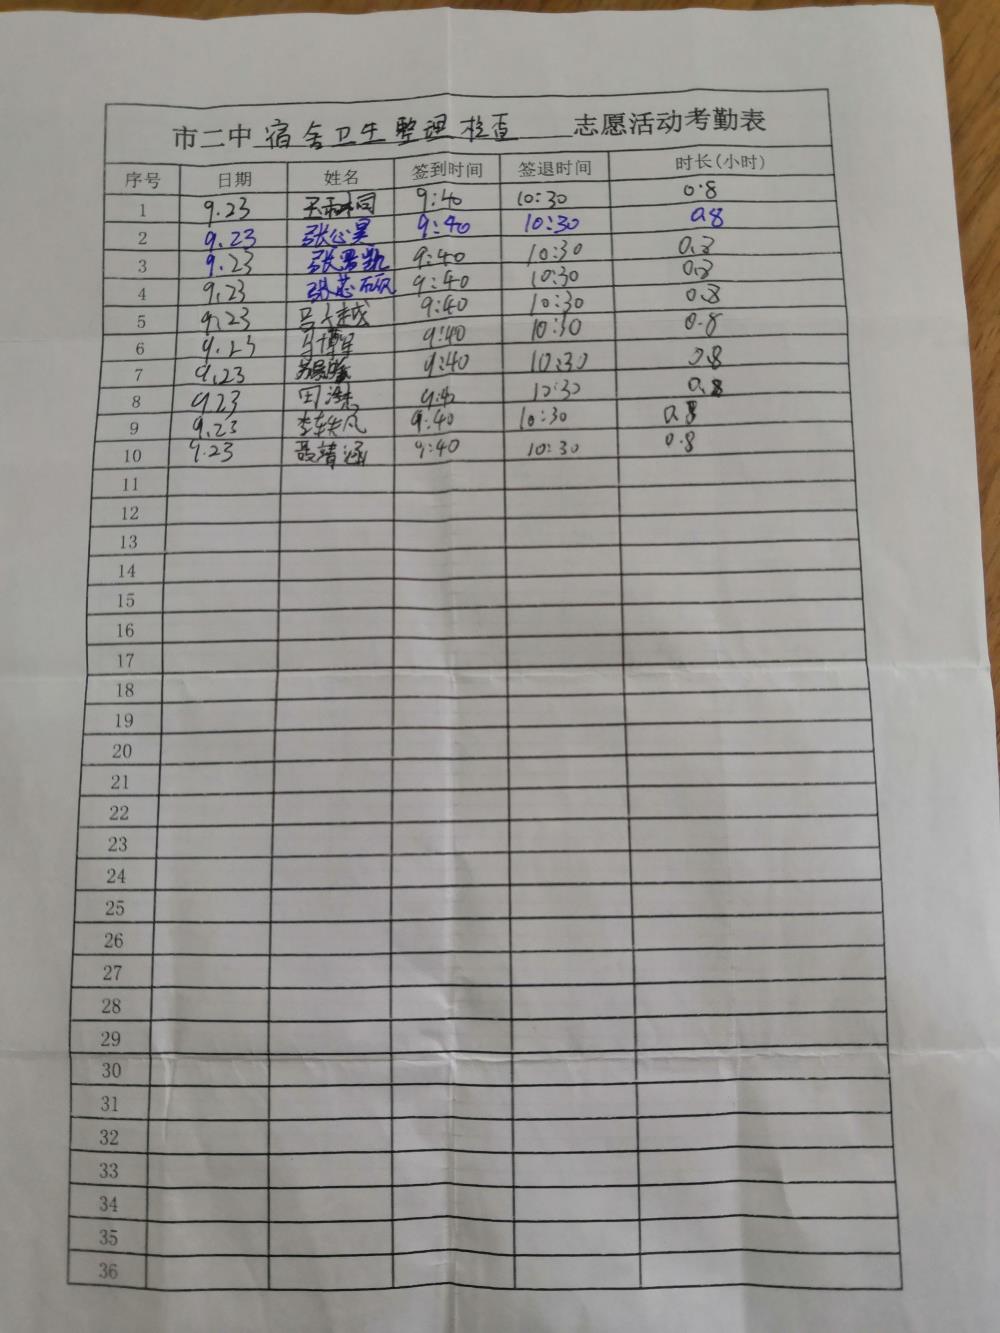 市二中 宿舍卫生整理检查 志愿活动考勤表
序号 日期 姓名 签到时间 签退时间 时长(小时)
1 9.23 10:30 9:40 0.8
2 9.23 张公昊 9:40 10:30 0.8
3 9.23 9:40 10:30 0.8
4 9.23 张芯硕 9:40 10:30 0.8
5 9.23 9:40 10:30 0.8
6 9.23 9:40 10:30 0.8
7 9.23 9:40 10:30 0.8
8 9.23 9:40 10:30 0.8
9 9.23 李轶凡 9:40 10:30 0.8
10 9.23 聂靖涵 9:40 10:30 0.8
11
12
13
14
15
16
17
18
19
20
21
22
23
24
25
26
27
28
29
30
31
32
33
34
35
36